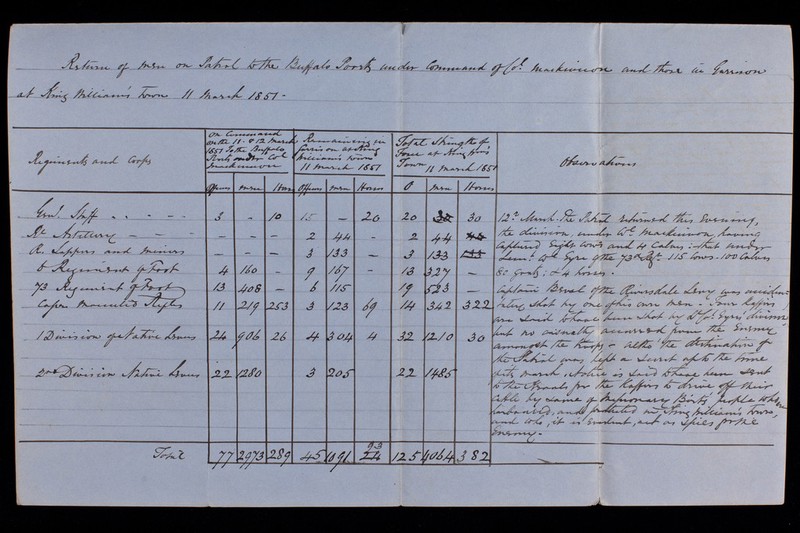 Return of men on Patrol to the Buffalo Poorts under Command of Col. Mackinnon and those in Garrison
at King William's Town 11 March 1851 -
Regiments and Corps
On Command on the 11 & 12 March 1851 to the Buffalo Poort under Col Mackinnon
Remaining in Garrison at King William's Town 11 March 1851
Total Strength of Force at King Wms Town 11 March 1851
Observations
Officers men Horses Officers men Horses O men Horses
Genl. Staff . . - - - 3 - 10 15 - 20 20 30
Rl Artillery - - - - - - 2 44 - 2 44
R. Sappers and miners - - - 3 133 - 3 133
6 Regiment of Foot 4 160 - 9 167 - 13 327 -
73 Regiment of Foot 13 408 - 6 115 19 523 -
Cape Mounted Rifles 11 219 253 3 123 69 14 342 322
1 Division of Native Levies 24 906 26 4 304 4 32 1210 30
2nd Division Native Levies 22 1280 3 205 22 1485
Total 77 2973 289 45 1091 93 24 125 4064 382
12th March. The Patrol returned this Evening,
the division under Col Mackinnon having
captured Eighty Cows and 4 Calves; that under
Lieut Col Eyre of the 73rd Regt. 115 Cows. 100 Calves
80 Goats; & 4 horses.
Captain Boval of the Riversdale Levy was
shot by one of his own men. Four Kaffirs
are said to have been shot by Lt Col Eyre's division
but no casualty occurred from the Enemy
amongst the troops - altho' the destination of
the Patrol was kept a secret up to the time
of its march, notice is said to have been sent
to the Kraals for the Kaffirs to drive off their
cattle by some of the Missionary people who are
harboured, and protected in King William's Town,
and who, it is evident, act as Spies for the
Enemy.